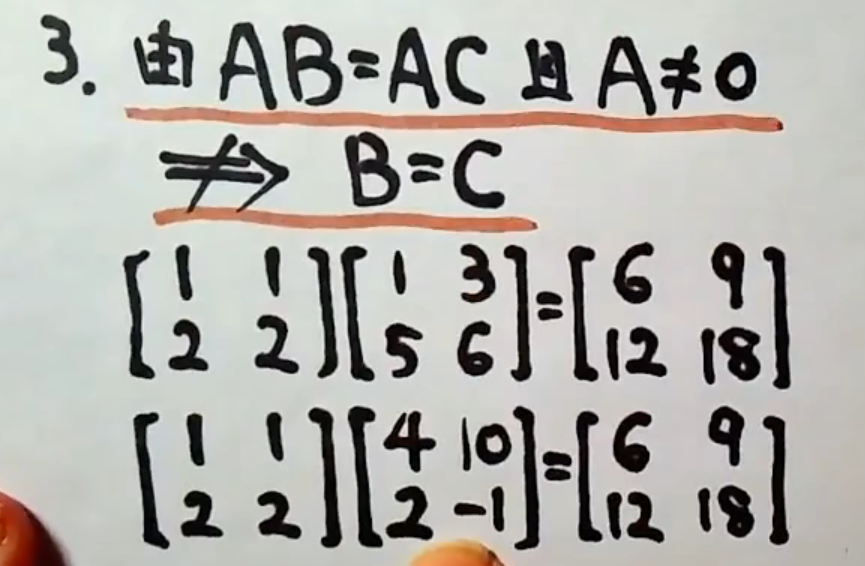 3. 由 AB=AC 且 A≠0
⇏ B=C
[1 1; 2 2][1 3; 5 6]=[6 9; 12 18]
[1 1; 2 2][4 10; 2 -1]=[6 9; 12 18]